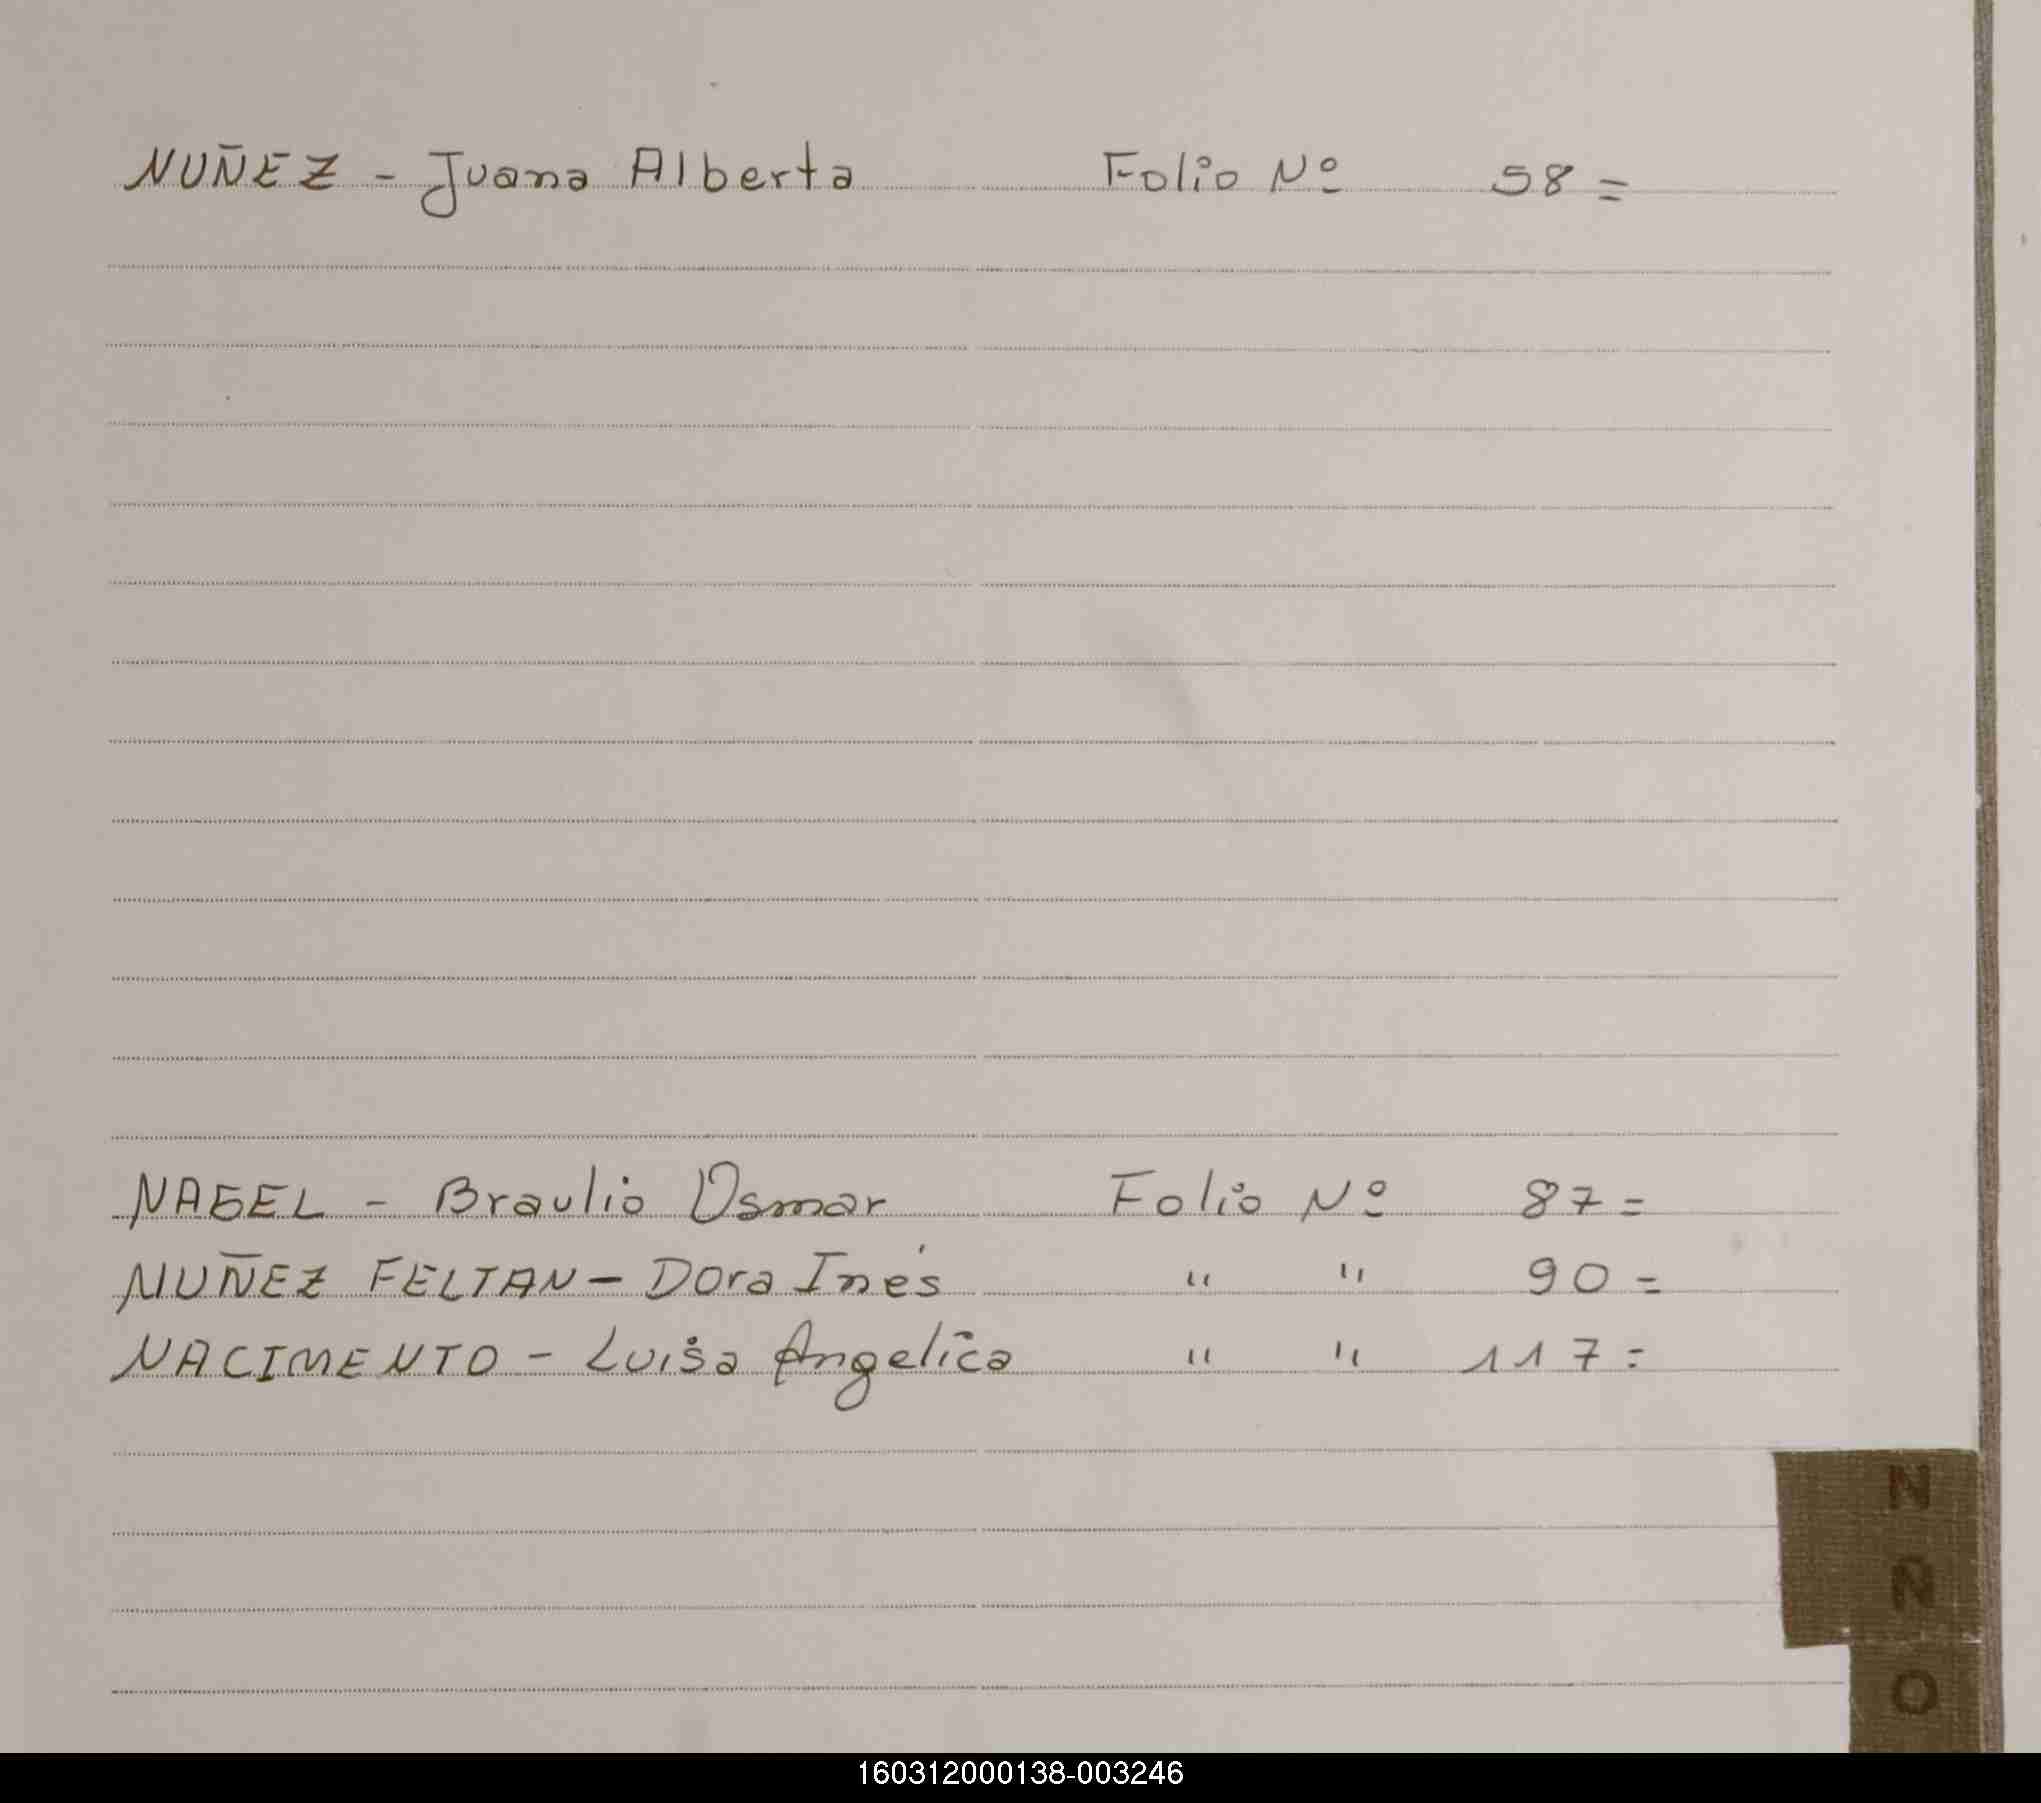 NUÑEZ - Juana Alberta Folio Nº 58=
NAGEL - Braulio Osmar Folio Nº 87=
NUÑEZ FELTAN - Dora Inés " " 90=
NACIMENTO - Luisa Angelica " " 117=
N
Ñ
O
160312000138-003246